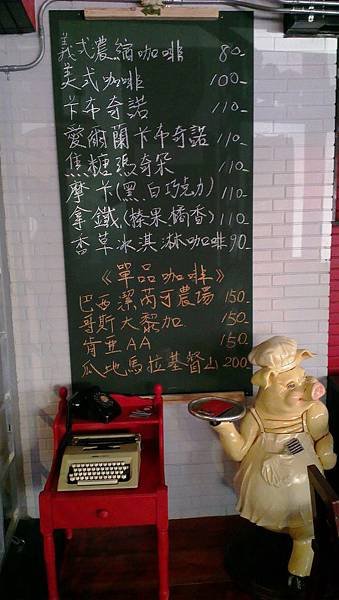 義式濃縮咖啡 80-
美式咖啡 100-
卡布奇諾 110-
愛爾蘭卡布奇諾 110-
焦糖瑪奇朵 110-
摩卡(黑.白巧克力) 110-
拿鐵(榛果.橘香) 110-
香草冰淇淋咖啡 90-
《單品咖啡》
巴西潔芮可農場 150-
哥斯大黎加 150-
肯亞AA 150-
瓜地馬拉基督山 200-